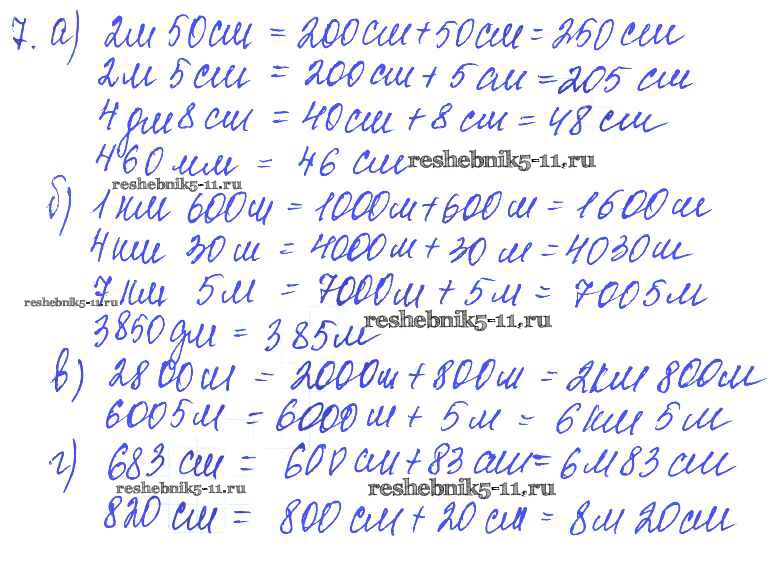 7. а) 2м 50см = 200см+50см = 250см
2м 5см = 200см + 5см = 205 см
4дм 8см = 40см + 8см = 48 см
460 мм = 46 см reshebnik5-11.ru
reshebnik5-11.ru
б) 1км 600м = 1000м+600м = 1600м
4км 30м = 4000м + 30м = 4030м
7км 5м = 7000м + 5м = 7005м
reshebnik5-11.ru
3850дм = 385м reshebnik5-11.ru
в) 2800м = 2000м + 800м = 2км 800м
6005м = 6000м + 5м = 6км 5м
г) 683 см = 600см + 83см = 6м 83см
reshebnik5-11.ru reshebnik5-11.ru
820 см = 800см + 20см = 8м 20см